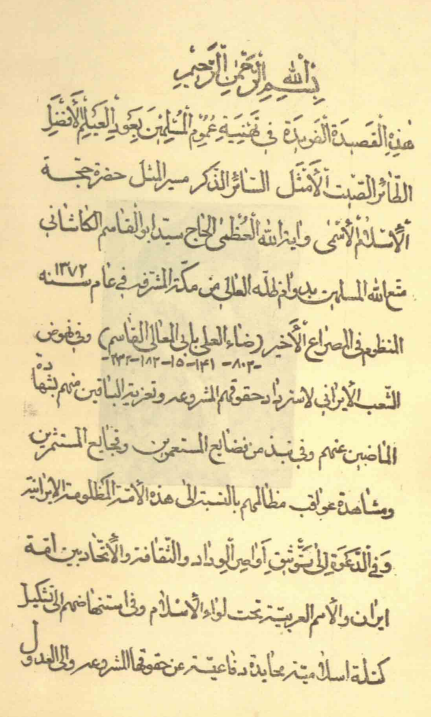 بِسْمِ اللهِ الرَّحْمٰنِ الرَّحِيْمِ
هٰذِهِ الْقَصِيدَةُ الْفَرِيدَةُ فِى تَهْنِيَةِ عُمُوْمِ الْمُسْلِمِيْنَ بِعَوْدِ الْعَيْلَمِ الْأَفْضَلِ
الطّائر الصّيت الأَمْثَل السّائر الذّكر مسير المثل حضرة حجّة
الْإِسْلامِ الْأَسْمٰى واية الله الْعُظمٰى الحاج سيّد ابو القاسم الكاشانى
متّع الله المسلمين بدوام ظلّه العالى من مكّة المشرّفة فى عام سنه ١٣٧٢
المنظوم فى المصراع الأَخير (رضاء العلى بابى المعالى القاسم) وفى نهوض
-٨٠٢-١٤١-١٥-١٨٢-٢٣٢-
الشّعب الايرانى لاسترداد حقوقهم المشروعه وتعزية الباقين منهم بشهادة
الماضين عنهم وفى نبذ من فضايع المستعمرين وفجايع المستثمرين
ومشاهدة عواقب مظالمهم بالنسبة الى هذه الأمّة المظلومة الايرانيّة
وَفى الدَّعوَة اِلىٰ تَوْثيق اَواصِر الْوِداد والثّقافة والأتّحاد بين امّة
ايران والأمم العربيّة تحت لواء الأسلام وفى استنهاضهم الى تشكيل
كتلة اسلاميّة محايدة دفاعيّة عن حقوقها المشروعه والى العدول